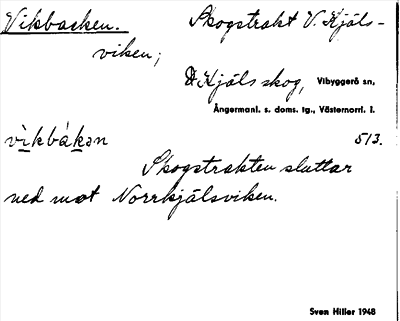 Vikbacken. Skogstrakt V. Kjäls-
viken;
Kjälsskog, Vibyggerå sn,
Ångermanl. s. doms. tg., Västernorrl. l.
vìkbákən 513.
Skogstrakten sluttar
ned mot Norrkjälsviken.
Sven Hiller 1948